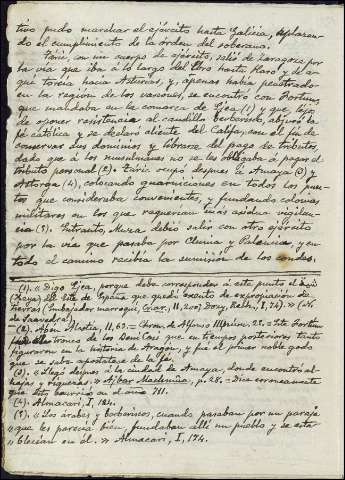 tivo pudo marchar el ejército hasta Galicia, aplazan-
do el cumplimiento de la orden del soberano.
Táric, con un cuerpo de ejército, salió de Zaragoza por
la vía que iba á lo largo del Ebro hasta Haro y de a-
quí torcía hacia Asturias, y, apenas había penetrado
en la región de los vascones, se encontró con Fortun,
que mandaba en la comarca de Ejea (1) y que lejos
de oponer resistencia al caudillo berberisco, abjuró la
fé católica y se declaró cliente del Califa, con el fin de
conservar sus dominios y librarse del pago de tributos,
dado que á los musulmanes no se les obligaba á pagar el
tributo personal (2). Táric ocupó después la Amaya (3) y
Astorga (4), colocando guarniciones en todos los pun-
tos que consideraba convenientes, y fundando colonias
militares en los que requerían más asidua vigilan-
cia (5). Entretanto, Muza debió salir con otro ejército
por la vía que pasaba por Clunia y Palencia, y en
todo el camino recibía la sumisión de los condes.
(1). «Digo Ejea, porque debe corresponder á este punto el
(Xeya) del Este de España que quedó exento de expropiación de
tierras (Embajador marroquí, 200) Dozy, Rech., I, 74).» (N.
de Saavedra).
(2). Aben Alcotia, II, 63. = Chron. de Alfonso III, núm. 25. = Este Fortun
fué el tronco de los Beni Casi que en tiempos posteriores tanto
figuraron en la historia de Aragón, y fué el primer noble godo
que se sabe apostatase de la fé.
(3). «Llegó después á la ciudad de Amaya, donde encontró al-
hajas y riquezas.» Ajbar Machmúa, p. 28. = Dice erroneamente
que esto ocurrió en el año 711.
(4). Almacari, I, 174.
(5). «Los árabes y berberiscos, cuando pasaban por un paraje
que les parecía bien, fundaban allí un pueblo y se esta-
blecían en él.» Almacari, I, 174.